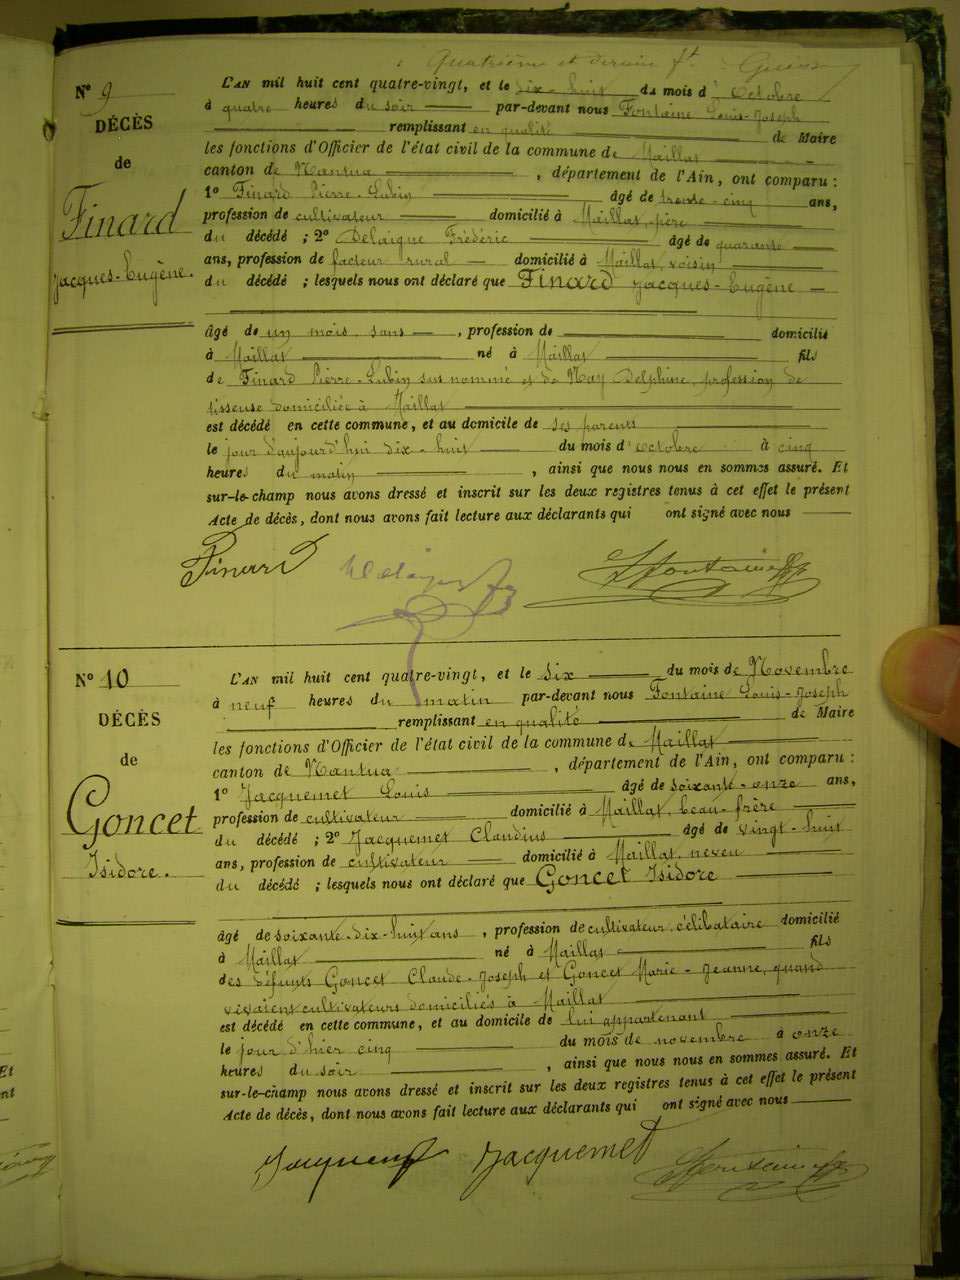 Quatrième et dernier ft. Guers
N° 9
DÉCÈS
de
Finard
Jacques-Eugène.
L'AN mil huit cent quatre-vingt, et le dix-huit du mois d'Octobre
à quatre heures du soir par-devant nous Fontaine Louis-Joseph
remplissant en qualité de Maire
les fonctions d'Officier de l'état civil de la commune de Maillat
canton de Nantua, département de l'Ain, ont comparu :
1° Finard Pierre-Lubin âgé de trente-cinq ans,
profession de cultivateur domicilié à Maillat, père
du décédé ; 2° Delaigue Frédéric âgé de quarante
ans, profession de facteur rural domicilié à Maillat, voisin
du décédé ; lesquels nous ont déclaré que Finard Jacques-Eugène
âgé de un mois sans, profession de domicilié
à Maillat né à Maillat fils
de Finard Pierre-Lubin susnommé et de Nay Delphine, profession de
tisseuse domiciliée à Maillat
est décédé en cette commune, et au domicile de ses parents
le jour d'aujourd'hui dix-huit du mois d'octobre à cinq
heures du matin, ainsi que nous nous en sommes assuré. Et
sur-le-champ nous avons dressé et inscrit sur les deux registres tenus à cet effet le présent
Acte de décès, dont nous avons fait lecture aux déclarants qui ont signé avec nous
Finard Delaigue Fontaine
N° 10
DÉCÈS
de
Goncet
Isidore.
L'AN mil huit cent quatre-vingt, et le six du mois de Novembre
à neuf heures du matin par-devant nous Fontaine Louis-Joseph
remplissant en qualité de Maire
les fonctions d'Officier de l'état civil de la commune de Maillat
canton de Nantua, département de l'Ain, ont comparu :
1° Jacquemet Louis âgé de soixante-onze ans,
profession de cultivateur domicilié à Maillat, beau-frère
du décédé ; 2° Jacquemet Claudius âgé de vingt-huit
ans, profession de cultivateur domicilié à Maillat, neveu
du décédé ; lesquels nous ont déclaré que Goncet Isidore
âgé de soixante-dix-huit ans, profession de cultivateur, célibataire domicilié
à Maillat né à Maillat fils
des défunts Goncet Claude-Joseph et Goncet Marie-Jeanne, quand
vivaient cultivateurs domiciliés à Maillat
est décédé en cette commune, et au domicile de lui appartenant
le jour d'hier cinq du mois de novembre à onze
heures du soir, ainsi que nous nous en sommes assuré. Et
sur-le-champ nous avons dressé et inscrit sur les deux registres tenus à cet effet le présent
Acte de décès, dont nous avons fait lecture aux déclarants qui ont signé avec nous
Jacquemet Jacquemet Fontaine